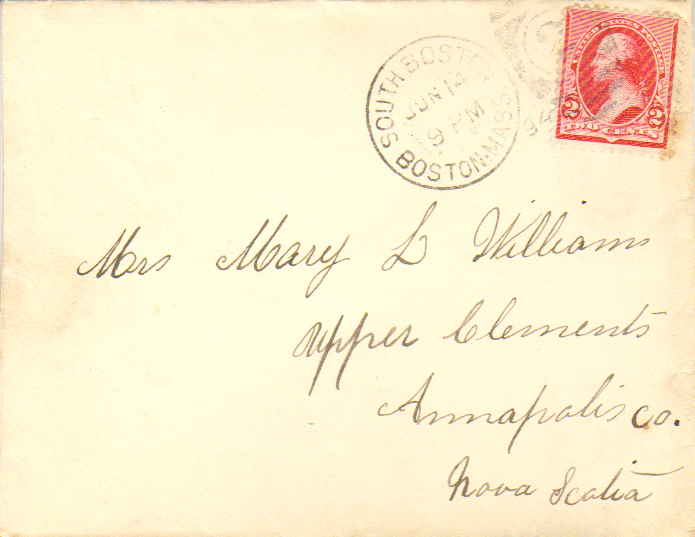 SOUTH BOSTON
JUN 14
9 PM
BOSTON.MASS.
94
UNITED STATES POSTAGE
2 2
Mrs Mary L Williams
Upper Clements
Annapolis co.
Nova Scotia